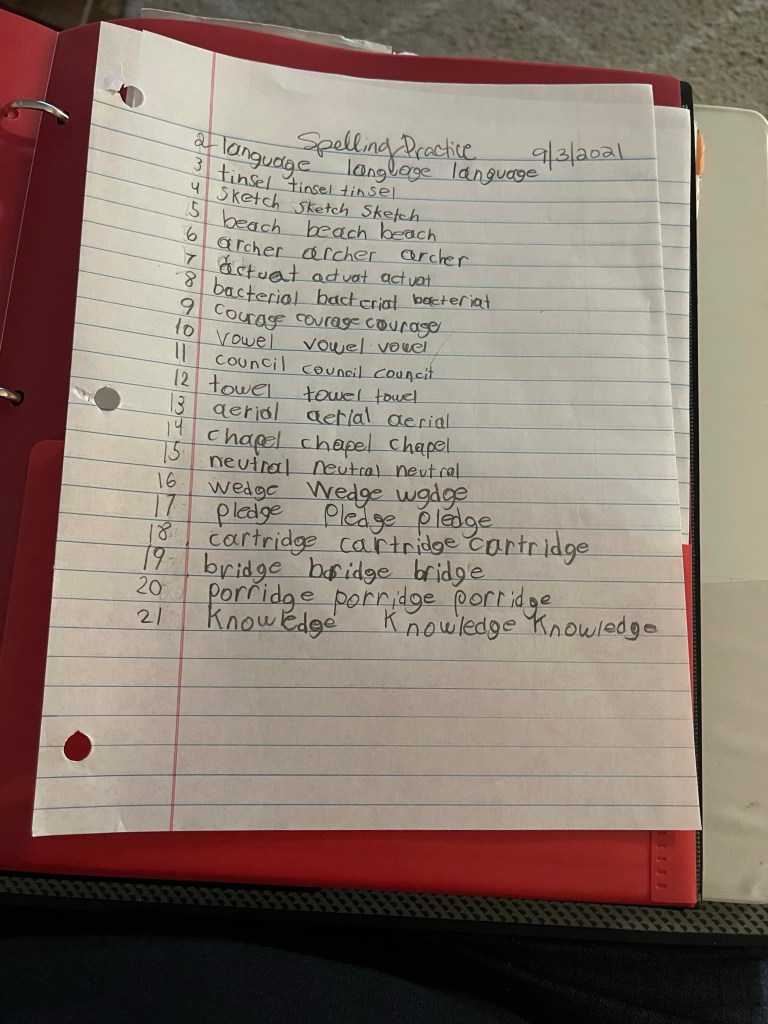 Spelling Practice 9/3/2021
2 language language language
3 tinsel tinsel tinsel
4 sketch sketch sketch
5 beach beach beach
6 archer archer archer
7 actuat actuat actuat
8 bacterial bacterial bacterial
9 courage courage courage
10 vowel vowel vowel
11 council council council
12 towel towel towel
13 aerial aerial aerial
14 chapel chapel chapel
15 neutral neutral neutral
16 wedge Wedge wgdge
17 pledge Pledge pledge
18 cartridge cartridge cartridge
19 bridge bridge bridge
20 porridge porridge porridge
21 Knowledge Knowledge Knowledge